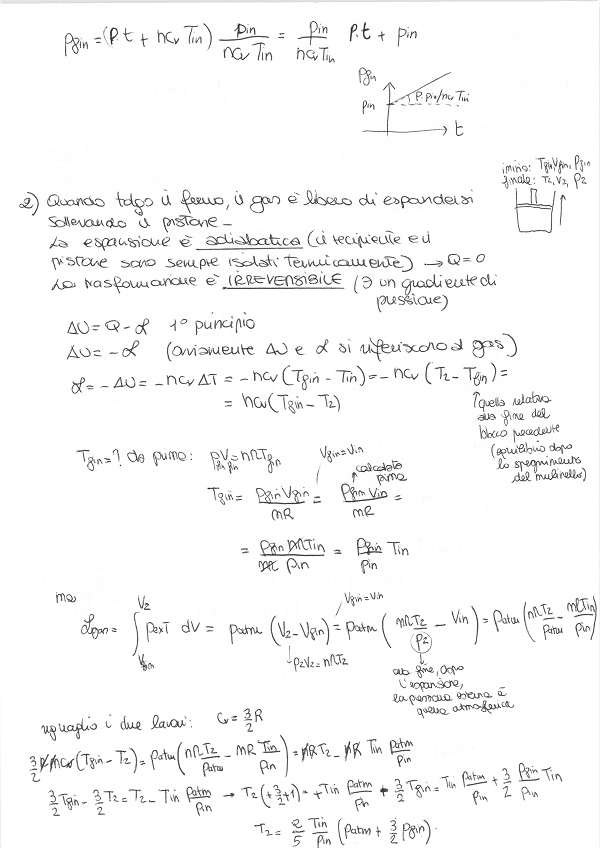 pfin = (P.t + ncv Tin) pin/ncv Tin = pin/ncvTin P.t + pin
pfin
pin
P pin/ncv Tin
t
inizio: Tfin Vfin, Pfin
finale: T2, V2, p2
2) Quando tolgo il fermo, il gas è libero di espandersi
sollevando il pistone -
La espansione è adiabatica (il recipiente e il
pistone sono sempre isolati termicamente) → Q=0
La trasformazione è IRREVERSIBILE (∃ un gradiente di
pressione)
ΔU = Q - L 1° principio
ΔU = - L (ovviamente ΔU e L si riferiscono al gas)
L = - ΔU = - ncv ΔT = - ncv (Tfin - Tin) = - ncv (T2 - Tfin) =
= ncv (Tfin - T2)
↑ quella relativa
alla fine del
blocco precedente
(equilibrio dopo
lo spegnimento
del mulinello)
Tfin = ? da prima: pfin Vfin = nRTfin
Vfin = Vin
calcolata
prima
Tfin = pfin Vfin/nR = pfin Vin/nR =
= pfin nRTin/nR pin = pfin/pin Tin
ma
Vfin = Vin
Lgas = ∫ V2 Vfin pext dV = patm (V2 - Vfin) = patm (nRT2/p2 - Vin) = patm (nRT2/patm - nRTin/pin)
p2V2 = nRT2
alla fine, dopo
l'espansione,
la pressione esterna è
quella atmosferica
uguaglio i due lavori: cv = 3/2 R
3/2 nR (Tfin - T2) = patm (nRT2/patm - nR Tin/pin) = nRT2 - nR Tin patm/pin
3/2 Tfin - 3/2 T2 = T2 - Tin patm/pin → T2 (+3/2+1) = +Tin patm/pin + 3/2 Tfin = Tin patm/pin + 3/2 pfin/pin Tin
T2 = 2/5 Tin/pin (patm + 3/2 pfin).